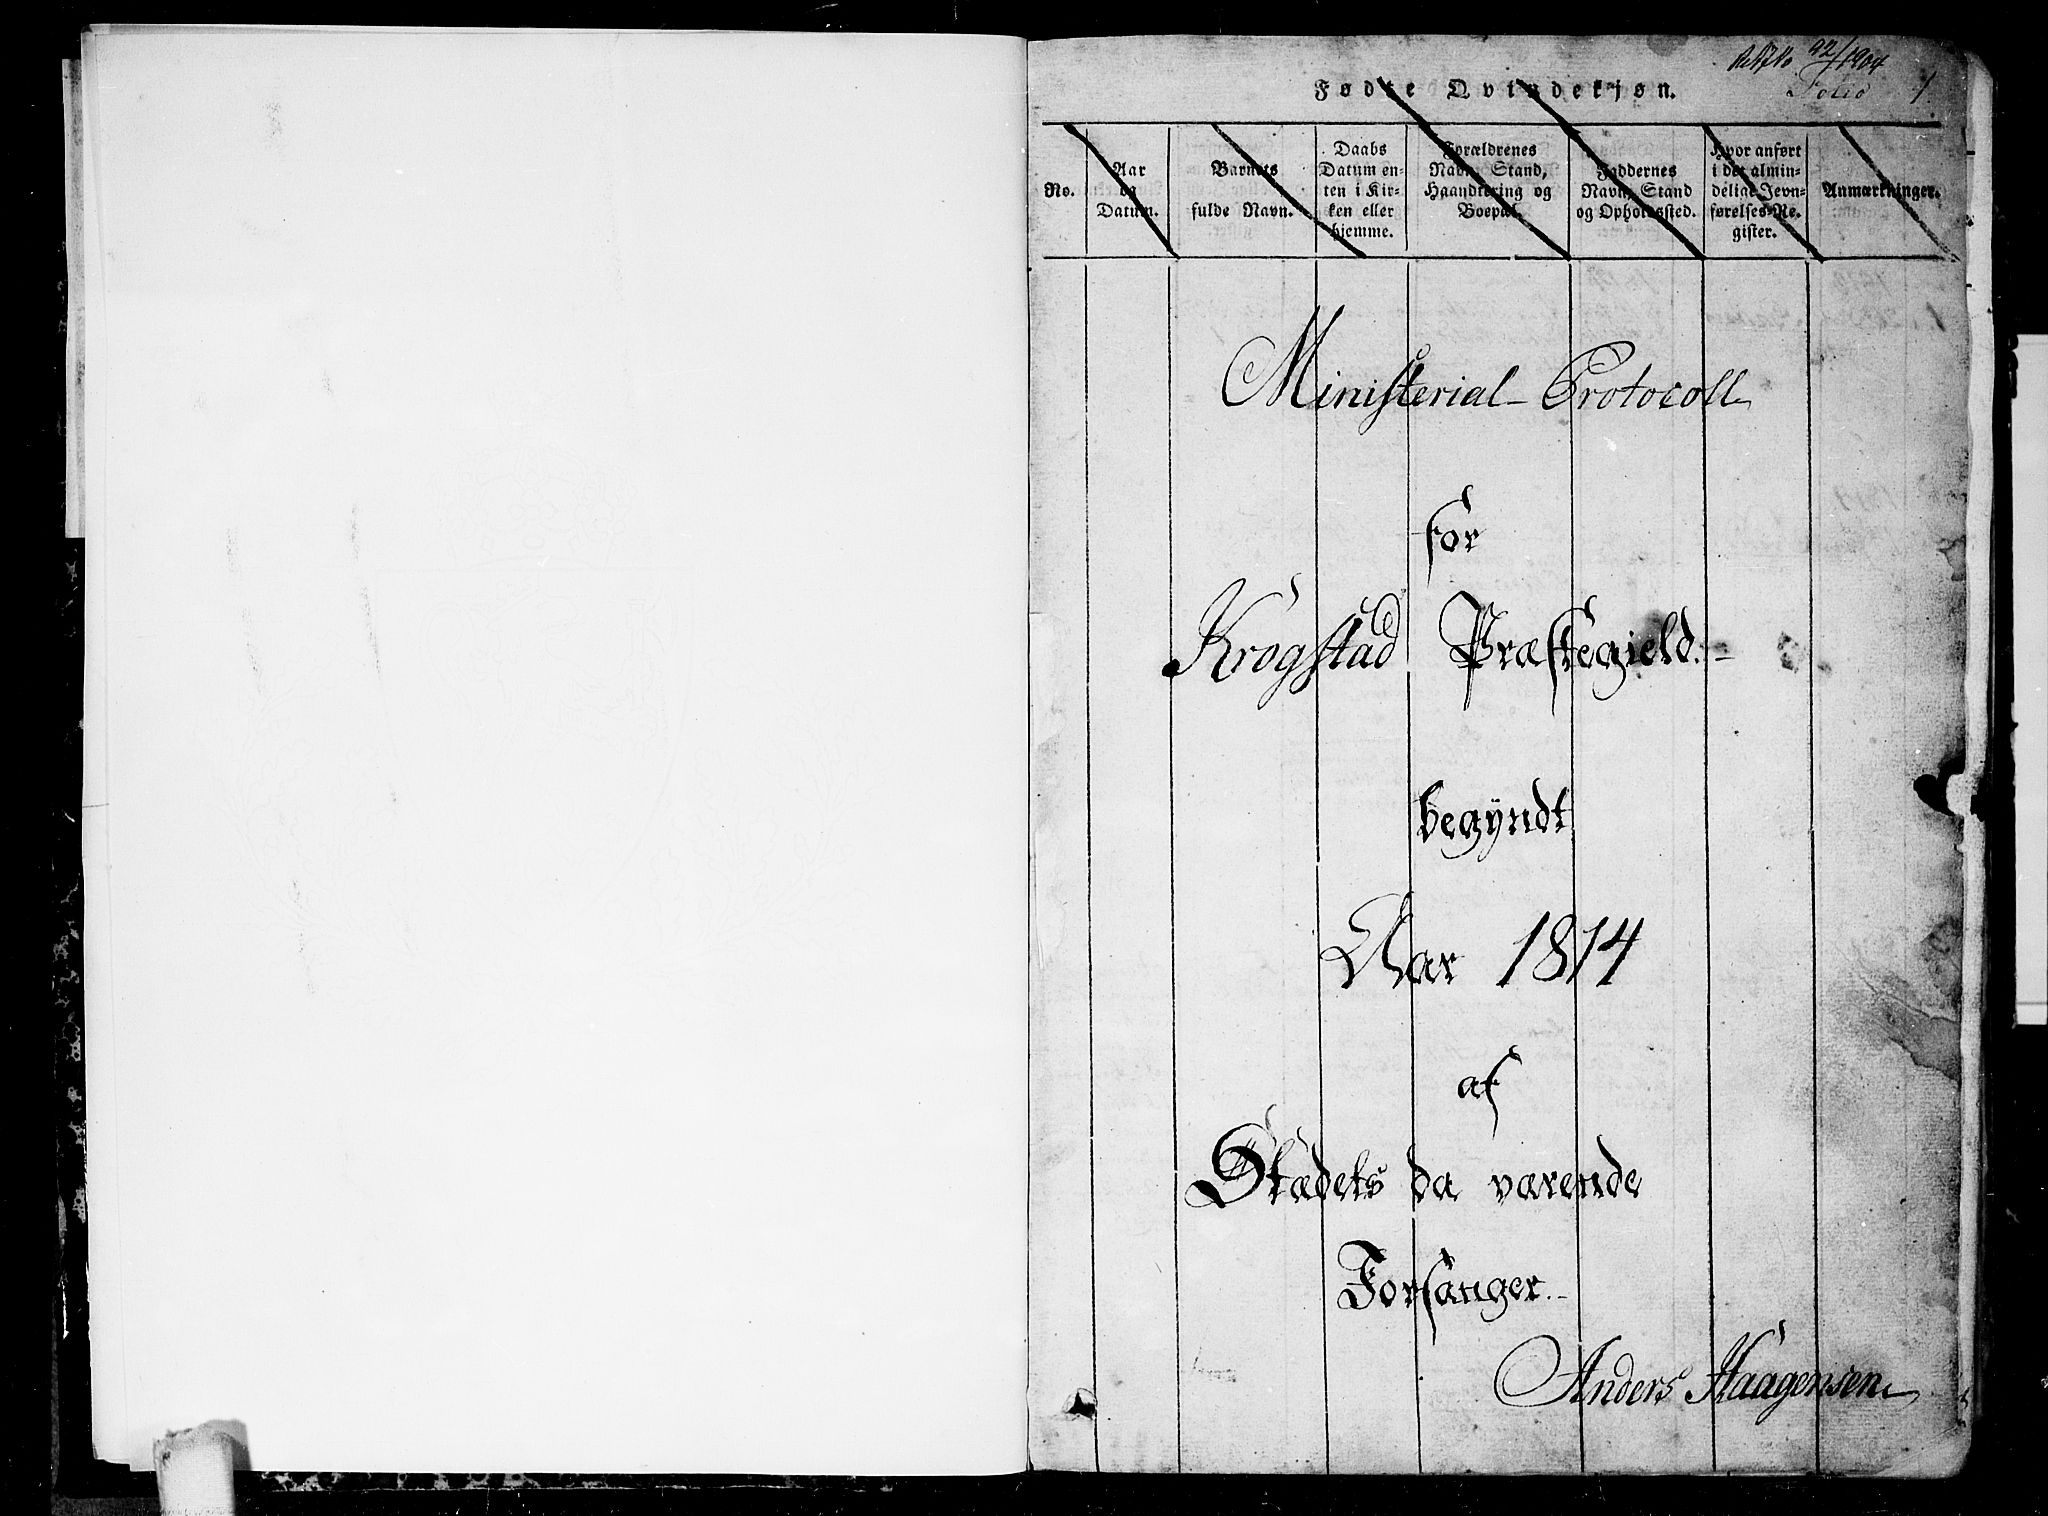 22/1904
Fødte Qvindekjøn.
Folio 1
No.
Aar
og
Datum.
Barnets
fulde Navn.
Daabs
Datum en-
ten i Kir-
ken eller
hjemme.
Forældrenes
Navn, Stand,
Haandtering og
Boepæl.
Faddernes
Navn, Stand
og Opholdssted.
Hvor anført
i det almin-
delige Jevn-
førelses-Re-
gister.
Anmærkninger.
Ministerial-Protocoll
for
Krogstad Præstegield.-
begyndt
Aar 1814
af
Stædets da værende
Forsanger.-
Anders Haagensen